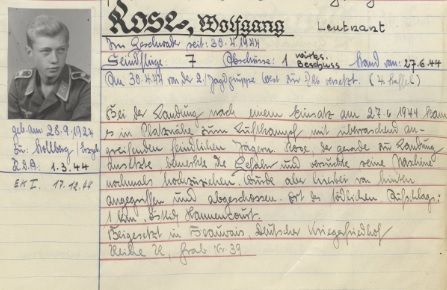 Rose, Wolfgang Leutnant
Im Geschwader seit: 30.4.1944
Feindflüge 7 Abschüsse: 1 wirks. Beschuss Stand vom: 27.6.44
Am 30.4.44 von der 2. Jagdgruppe West zur versetzt. (7. Staffel)
geb. am 28.9.1924
R.D.A. 1.3.44
EK I. 17.12.
Bei der Landung nach einem Einsatz am 27.6.1944 kam
es in Platznähe zum Luftkampf mit überraschend an-
greifenden feindlichen Jägern. Rose der gerade zur Landung
ansetzte bemerkte die Gefahr und versuchte seine Maschine
nochmals hochzuziehen. Wurde aber hierbei von hinten
angegriffen und abgeschossen. Ort des tödlichen Aufschlags:
1 Km. östlich Hannencourt.
Beigesetzt in Beauvais, Deutscher Kriegerfriedhof
Reihe Grab Nr. 39.